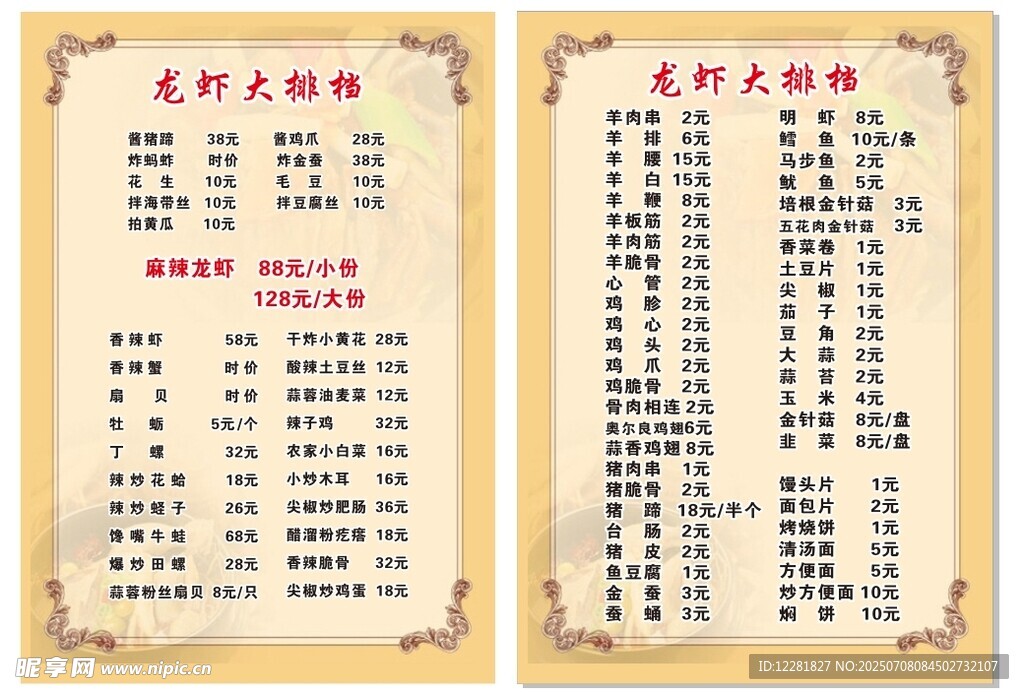 龙虾大排档
酱猪蹄 38元 酱鸡爪 28元
炸蚂蚱 时价 炸金蚕 38元
花生 10元 毛豆 10元
拌海带丝 10元 拌豆腐丝 10元
拍黄瓜 10元
麻辣龙虾 88元/小份
128元/大份
香辣虾 58元 干炸小黄花 28元
香辣蟹 时价 酸辣土豆丝 12元
扇贝 时价 蒜蓉油麦菜 12元
牡蛎 5元/个 辣子鸡 32元
丁螺 32元 农家小白菜 16元
辣炒花蛤 18元 小炒木耳 16元
辣炒蛏子 26元 尖椒炒肥肠 36元
馋嘴牛蛙 68元 醋溜粉疙瘩 18元
爆炒田螺 28元 香辣脆骨 32元
蒜蓉粉丝扇贝 8元/只 尖椒炒鸡蛋 18元
龙虾大排档
羊肉串 2元
羊排 6元
羊腰 15元
羊白 15元
羊鞭 8元
羊板筋 2元
羊肉筋 2元
羊脆骨 2元
心管 2元
鸡胗 2元
鸡心 2元
鸡头 2元
鸡爪 2元
鸡脆骨 2元
骨肉相连 2元
奥尔良鸡翅 6元
蒜香鸡翅 8元
猪肉串 1元
猪脆骨 2元
猪蹄 18元/半个
台肠 2元
猪皮 2元
鱼豆腐 1元
金蚕 3元
蚕蛹 3元
明虾 8元
鳕鱼 10元/条
马步鱼 2元
鱿鱼 5元
培根金针菇 3元
五花肉金针菇 3元
香菜卷 1元
土豆片 1元
尖椒 1元
茄子 1元
豆角 2元
大蒜 2元
蒜苔 2元
玉米 4元
金针菇 8元/盘
韭菜 8元/盘
馒头片 1元
面包片 2元
烤烧饼 1元
清汤面 5元
方便面 5元
炒方便面 10元
焖饼 10元
昵享网 www.nipic.cn
ID:12281827 NO:20250708084502732107